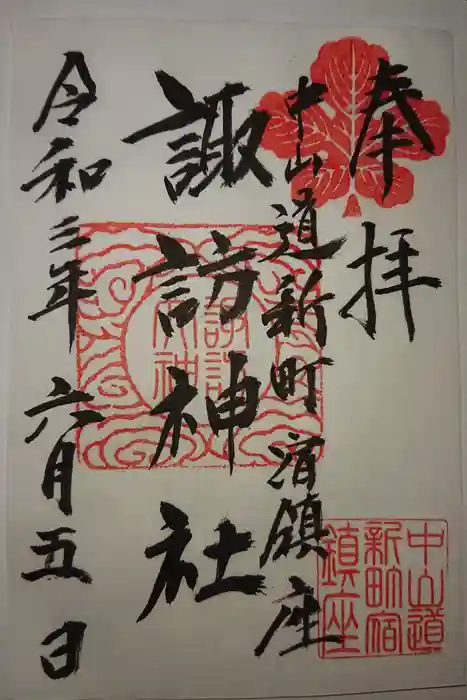 奉拝
中山道新町宿鎮座
諏訪神社
令和三年六月五日
中山道
新町宿
鎮座